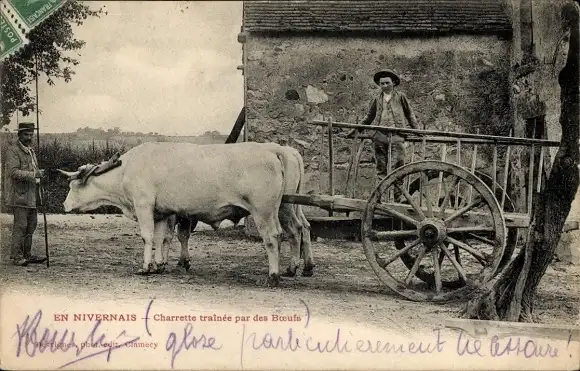 EN NIVERNAIS - Charrette traînée par des Bœufs
phot. édit. Clamecy
(glose particulièrement nécessaire)